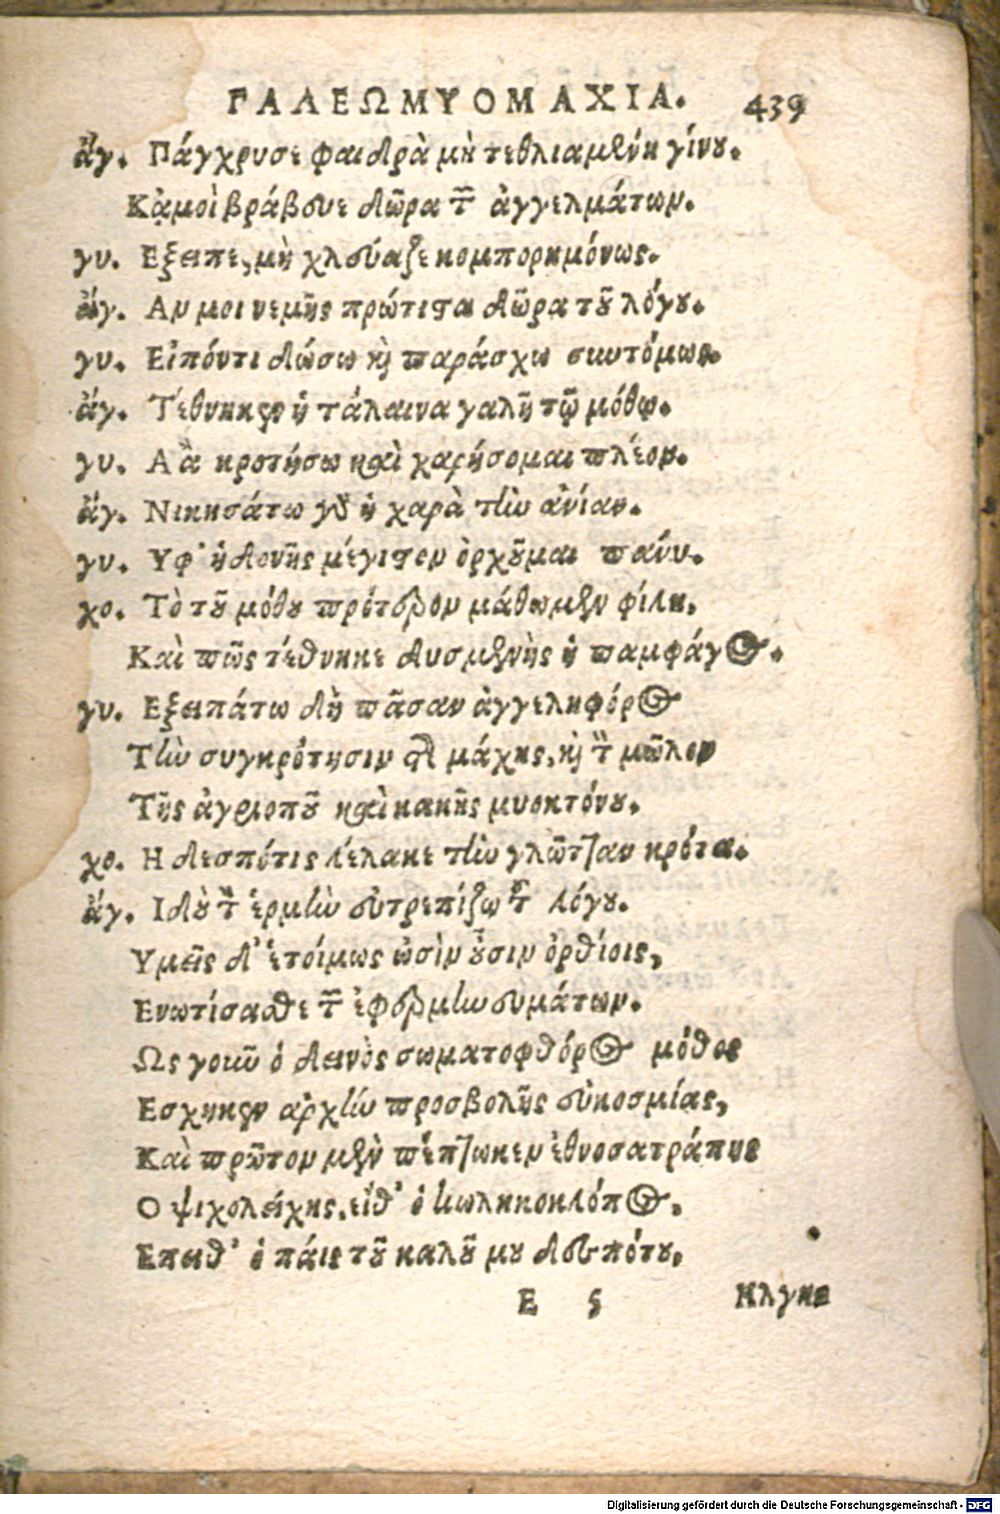 ΓΑΛΕΩΜΥΟΜΑΧΙΑ. 439
ἄγ. Πάγχρυσε φαιδρὰ μὴ τεθλιαμένη γίνου.
Κἀμοὶ βράβευε δῶρα τῶν ἀγγελμάτων.
γυ. Εξειπε, μὴ χλεύαζε κομπορημόνως.
ἄγ. Αν μοι νεμῇς πρώτιστα δῶρα τοῦ λόγου.
γυ. Εἰπόντι δώσω καὶ παράσχω συντόμως.
ἄγ. Τέθνηκεν ἡ τάλαινα γαλῆ τῷ μόθῳ.
γυ. Α ἂ κροτήσω καὶ χαρήσομαι πλέον.
ἄγ. Νικησάτω γοῦν ἡ χαρὰ τὴν ἀνίαν.
γυ. Υφ' ἡδονῆς μέγιστον ὀρχοῦμαι πάνυ.
χο. Τὸ τοῦ μόθου πρότερον μάθωμεν φίλη.
Καὶ πῶς τέθνηκε δυσμενὴς ἡ παμφάγος.
γυ. Εξειπάτω δὴ πᾶσαν ἀγγεληφόρος
Τὴν συγκρότησιν τῆς μάχης, καὶ τὸν μῶλον
Τῆς ἀγριοποῦ καὶ κακῆς μυοκτόνου.
χο. Η δεσπότις λέλακε τὴν γλῶτταν κρότει.
ἄγ. Ιδοὺ τὸν ἑρμὴν εὐτρεπίζω τοῦ λόγου.
Υμεῖς δ' ἑτοίμως ὠσὶν οὖσιν ὀρθίοις,
Ενωτίσασθε τῶν ἐφερμηνευμάτων.
Ως γοῦν ὁ δεινὸς σωματοφθόρος μόθος
Εσχηκεν ἀρχὴν προσβολῆς εὐκοσμίας,
Καὶ πρῶτον μὲν πέπτωκεν ἐθνοσατράπης
Ο ψιχολείχης, εἶθ' ὁ κωληκοκλόπος,
Επειθ' ὁ πάις τοῦ καλοῦ μου δεσπότου,
Ε ς Ηλγησε